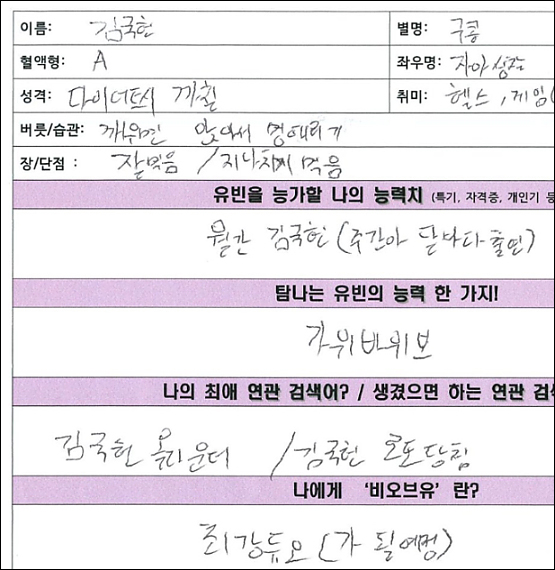 이름: 김국헌 별명: 구콩
혈액형: A 좌우명: 자아성찰
성격: 다이어트시 까칠 취미: 헬스, 게임(
버릇/습관: 깨우면 앉아서 멍때리기
장/단점 : 잘먹음 / 지나치게 먹음
유빈을 능가할 나의 능력치 (특기, 자격증, 개인기 등
월간 김국헌 (주간아 달마다 출연)
탐나는 유빈의 능력 한 가지!
가위바위보
나의 최애 연관 검색어? / 생겼으면 하는 연관 검색
김국헌 올라운더 / 김국헌 로또당첨
나에게 ‘비오브유’ 란?
최강듀오 (가 될예정)